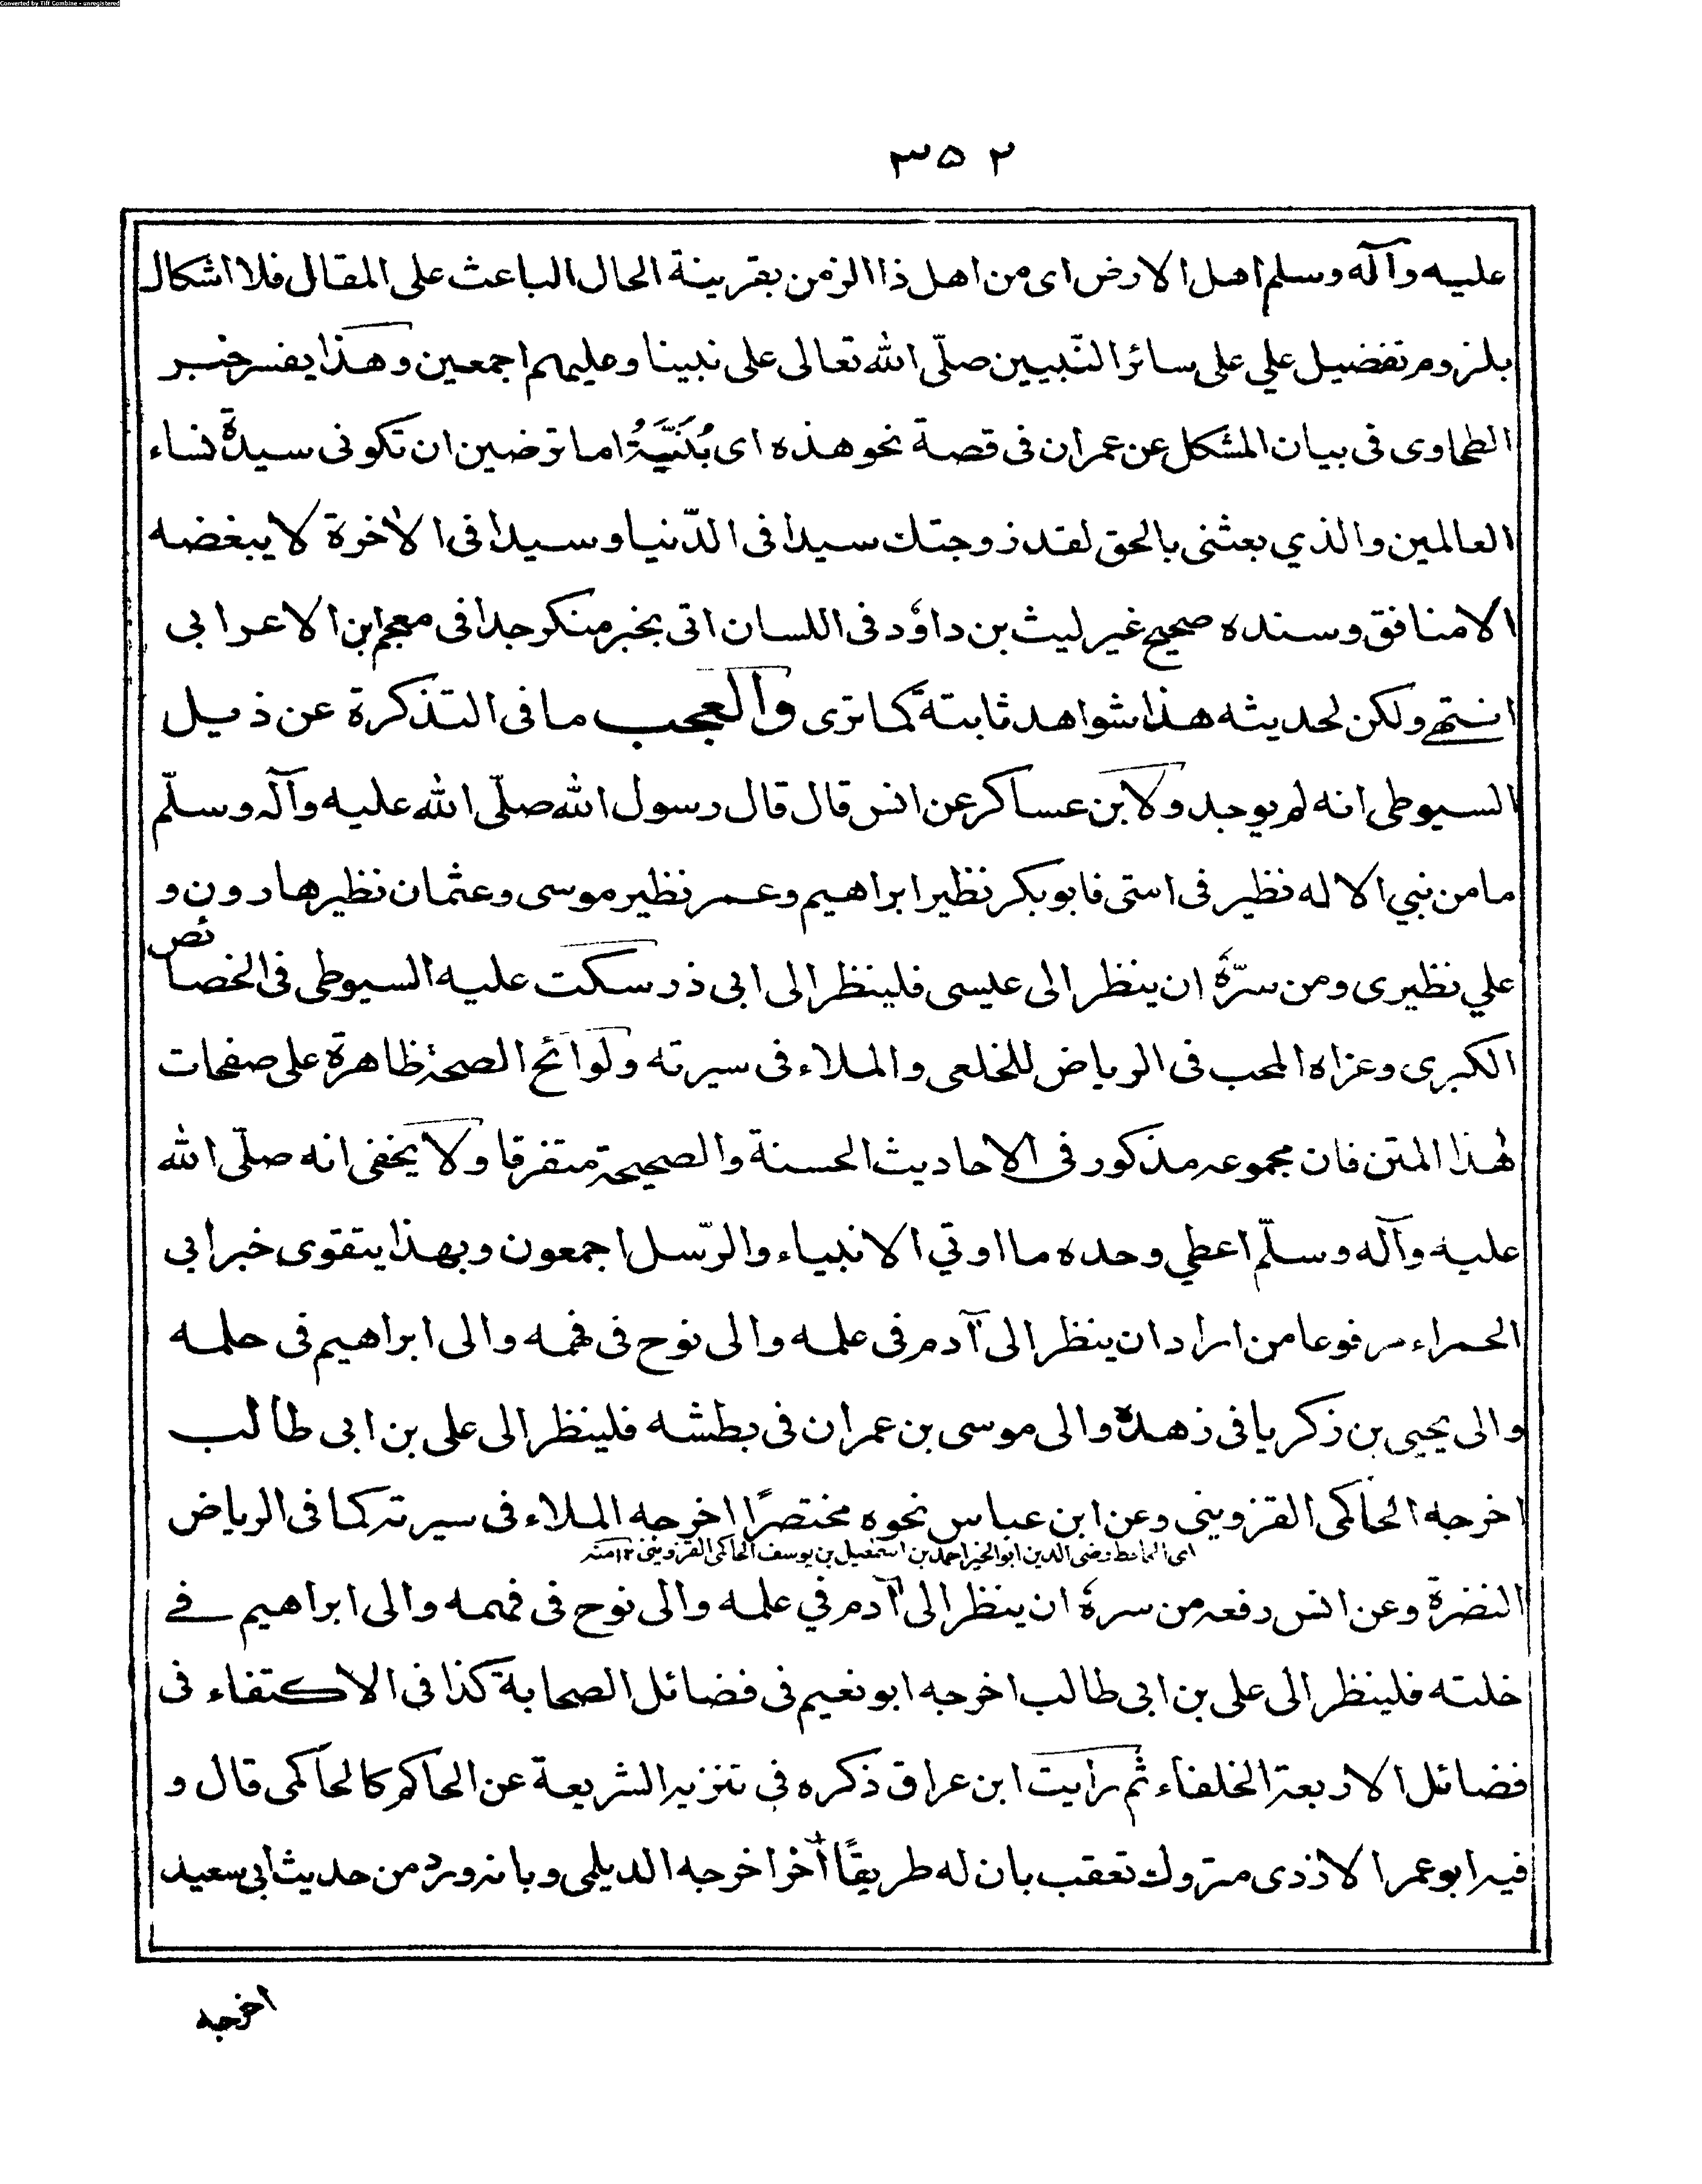 Converted by Tiff Combine - unregistered
٣٥٢
عليه وآله وسلم اهل الارض اى من اهل ذا الزمن بقرينة الحال الباعث على المقال فلا اشكال
بلزوم تفضيل علي على سائر النّبيين صلّى الله تعالى على نبينا وعليهم اجمعين وهذا يفسر خبر
الطحاوى فى بيان المشكل عن عمران فى قصة نحو هذه اى بُنَيَّةُ اما ترضين ان تكونى سيدة نساء
العالمين والذي بعثنى بالحق لقد زوجتك سيدا فى الدّنيا وسيدا فى الاخرة لا يبغضه
الا منافق وسنده صحيح غير ليث بن داوٗد فى اللسان اتى بخبر منكر جدا فى معجم ابن الاعرابى
انتهى ولكن لحديثه هذا شواهد ثابتة كما ترى والعجب ما فى التذكرة عن ذيل
السيوطى انه لم يوجد ولابن عساكر عن انس قال قال رسول الله صلّى الله عليه وآله وسلّم
ما من نبي الا له نظير فى امتى فابوبكر نظير ابراهيم وعمر نظير موسى وعثمان نظير هارون و
علي نظيرى ومن سرّهٗ ان ينظر الى عليسى فلينظر الى ابى ذر سكت عليه السيوطى فى الخصائص
الكبرى وعزاه المحب فى الرياض للخلعى والملاء فى سيرته ولوائح الصحة ظاهرة على صفحات
لهذا المتن فان مجموعه مذكور فى الاحاديث الحسنة والصحيحة متفرقا ولا يخفى انه صلّى الله
عليه وآله وسلّم اعطي وحده ما اوتي الانبياء والرّسل اجمعون وبهذا يتقوى خبر ابى
الحمراء مرفوعا من اراد ان ينظر الى آدم فى علمه والى نوح فى فهمه والى ابراهيم فى حلمه
والى يحيى بن زكريا فى زهده والى موسى بن عمران فى بطشه فلينظر الى على بن ابى طالب
اخرجه الحاكمى القزوينى وعن ابن عباس نحوه مختصرًا اخرجه الملاء فى سيرته كما فى الرياض
اى الحافظ رضى الدين ابو الخير احمد بن اسمٰعيل بن يوسف الحاكمى القزوينى ١٢ منه
النضرة وعن انس رفعه من سرهٗ ان ينظر الى آدم في علمه والى نوح فى فهمه والى ابراهيم فے
خلته فلينظر الى على بن ابى طالب اخرجه ابو نعيم فى فضائل الصحابة كذا فى الاكتفاء فى
فضائل الاربعة الخلفاء ثم رأيت ابن عراق ذكره في تنزيه الشريعة عن الحاكم كالحاكمى قال و
فيه ابو عمر الازدى متروك تعقب بان له طريقًا أخر اخرجه الديلمى وبانه ورد من حديث ابى سعيد
اخرجه